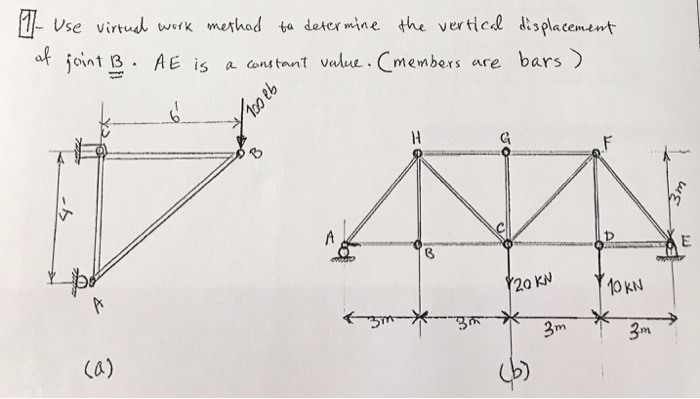 1- Use virtual work method to determine the vertical displacement
of joint B. AE is a constant value. (members are bars)
6'
100 lb
C
B
4'
A
(a)
H
G
F
3m
A
B
C
D
E
20 KN
10 KN
3m
3m
3m
3m
(b)